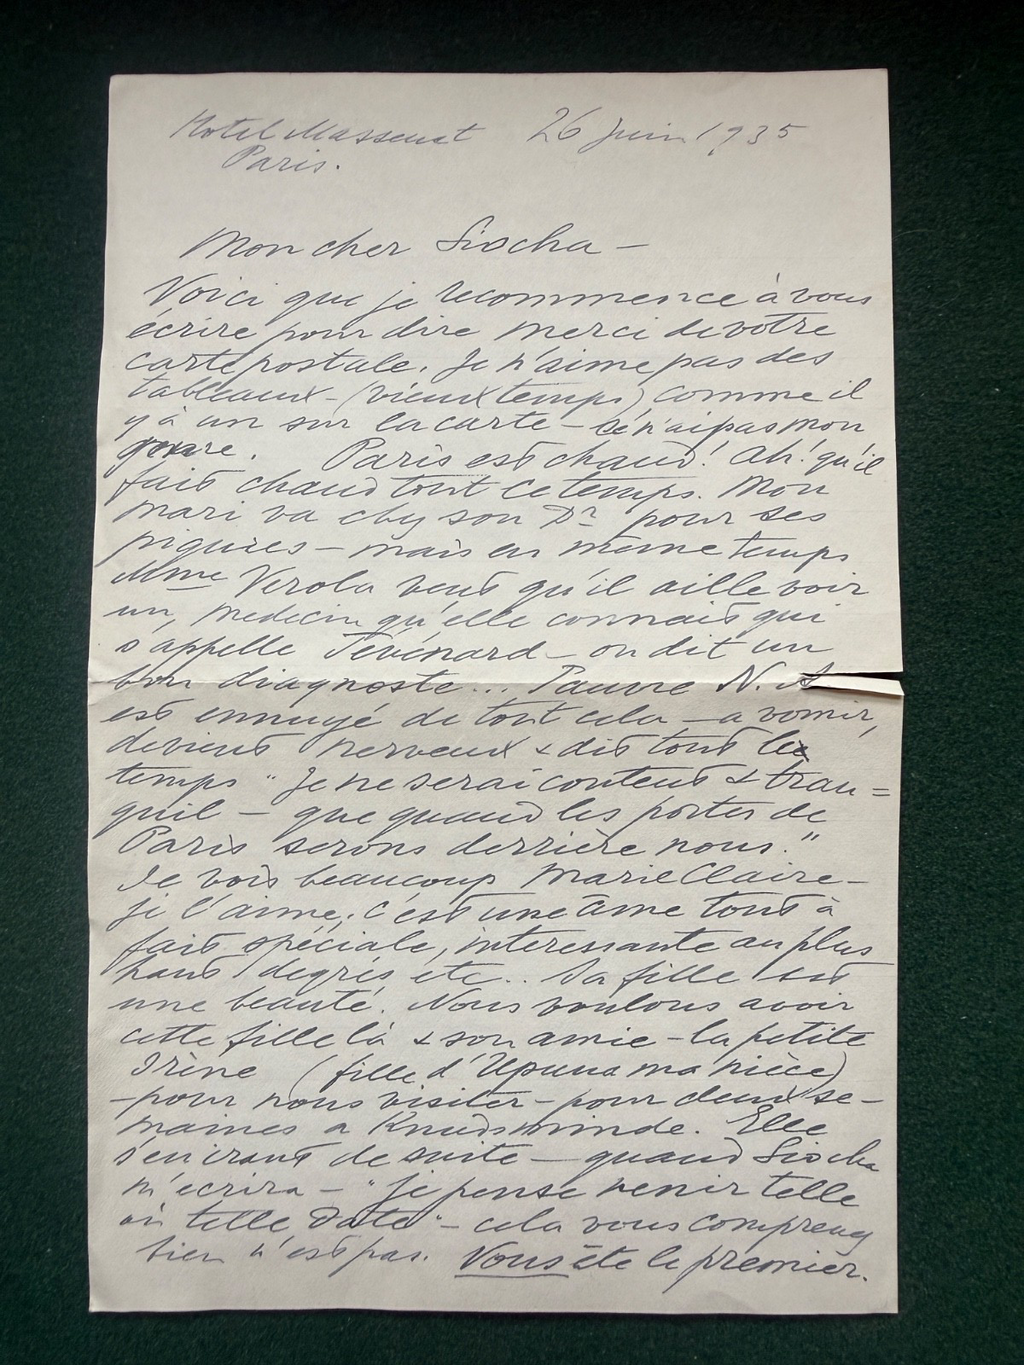 Hotel Massenet 26 Juin 1935
Paris.
Mon cher Siocha –
Voici que je recommence à vous
écrire pour dire merci de votre
carte postale. Je n'aime pas des
tableaux – (vieux temps) comme il
y à un sur la carte – pas mon
genre. Paris est chaud! Ah! qu'il
fait chaud tout ce temps. Mon
mari va chez son Dr pour ses
piqures – mais en même temps
Mme Verola veut qu'il aille voir
un, medecin qu'elle connait qui
s'appelle Tévénard – on dit un
bon diagnoste... Pauvre N. A
est ennuyé de tout cela – a vomir,
devient nerveux & dit tout le
temps "Je ne serai content & tran=
quil – que quand les portes de
Paris serons derrière nous."
Je vois beaucoup Marie Claire –
je l'aime, c'est une âme tout à
fait spéciale, interessante au plus
haut degrés etc.. Sa fille est
une beauté. Nous voulons avoir
cette fille là & son amie – la petite
Irène (fille d' ma nièce)
– pour nous visiter – pour deux se-
maines a Knudsminde. Elle
s'en de suite – quand Siocha
m'ecrira – "Je pense venir telle
ou telle date" – cela vous comprenez
bien n'est pas. Vous ête le premier.